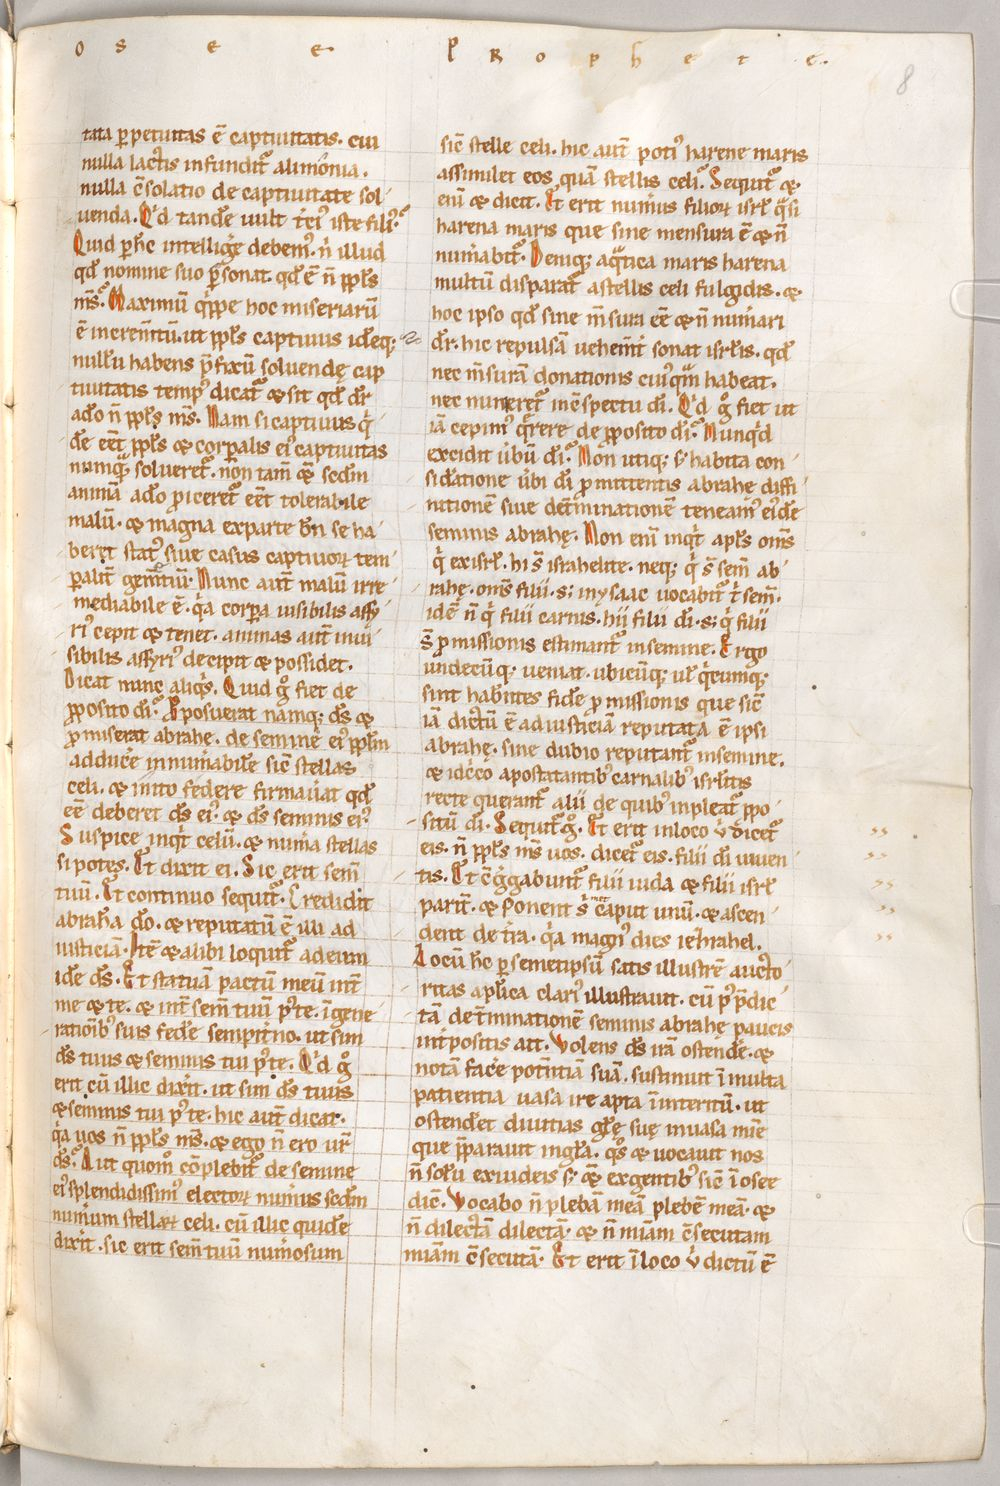 OSEE PROPHETE.
8
tata ꝑpetuitas ē captiuitatis. cui
nulla lactis infundit᷑ alimōnia.
nulla ɔ̄solatio de captiuitate sol
uenda. Qͥd tandē uult t̾ciꝰ iste filiꝰ?
Quid ꝑ h̄c intellig̾e debemꝰ. n̄ illud
qd̄ nomine suo ꝑsonat. qd̄ ē n̄ ppl̄s
m̄s? Maximū qͥppe hoc miseriarū
ē increm̄tū. ut ppl̄s captiuus idēq;
nullū habens p̄fixū soluendę cap
tiuitatis tempꝰ dicat᷑ ⁊ sit qd̄ dr̄
ad̄o n̄ ppl̄s m̄s. Nam si captiuus qͥ
dē eēt ppl̄s ⁊ corꝑalis eiꝰ captiuitas
numqͣ solueret᷑. non tam̄ ⁊ sc̄dm
animā ad̄o ꝓiceret᷑ eēt tolerabile
malū. ⁊ magna ex parte bn̄ se ha
beret statꝰ siue casus captiuoꝝ tem
ꝑaliū gem̄tiū. Nunc aut̄ malū irre
mediabile ē. qͥa corꝑa uisibilis assy
riꝰ cepit ⁊ tenet. animas aut̄ inui
sibilis assyriꝰ decipit ⁊ possidet.
Dicat nunc aliqͥs. Quid gͦ fiet de
ꝓposito dī? Proposuerat namq; d̄s ⁊
ꝓmiserat abrahę. de semine eiꝰ ppl̄m
adducē innum̾abilē sic̄ stellas
celi. ⁊ inito federe firmauat qd̄
eē deberet d̄s eiꝰ. ⁊ d̄s seminis eiꝰ.
Suspice inqͥt celū. ⁊ num̾a stellas
si potes. Et dixit ei. Sic erit sem̄
tuū. Et continuo sequit᷑. Credidit
abraha d̄o. ⁊ reputatū ē illi ad
iusticiā. Itē ⁊ alibi loquit᷑ ad eum
idē d̄s. Et statuā pactū meū int̾
me ⁊ te. ⁊ int̾ sem̄ tuū pꝰ te. ī gene
ratiōibꝰ suis fedē sempit̾no. ut sim
d̄s tuus ⁊ seminis tui pꝰ te. Qͥd gͦ
erit cū illic dixit. ut sim d̄s tuus
⁊ seminis tui pꝰ te. hic aut̄ dicat.
qͥa uos n̄ ppl̄s m̄s. ⁊ ego n̄ ero ur̄
d̄s? Aut quom̄ ɔ̄plebit᷑ de semine
eiꝰ splendidissimꝰ electoꝝ num̾us sc̄dm
num̾um stellaꝝ celi. cū illic quidē
dixit. sic erit sem̄ tuū num̾osum
sic̄ stelle celi. hic aut̄ potiꝰ harene maris
assimilet eos quā stellis celi? Sequit᷑ ⁊
enī ⁊ dicit. Et erit num̾us filioꝝ isrl̄ qͣsi
harena maris que sine mensura ē ⁊ n̄
num̾abit᷑. Deniq; aqͣtica maris harena
multū disparat᷑ a stellis celi fulgidis. ⁊
hoc ipso qd̄ sine m̄sura eē ⁊ n̄ num̾ari
dr̄. hic repulsā uehem̄t̾ sonat isrl̄is. qd̄
nec m̄surā donationis cuiꝰqͣm habeat.
nec numeret᷑ in ɔ̄spectu dī. Qͥd gͦ fiet ut
iā cepimꝰ qͣrere de ꝓposito dī? Nunqͥd
excidit ūbū dī? Non utiq; sꝫ habita con
sid̾atione ūbi dī ꝓmittentis abrahę diffi
nitionē siue det̾minationē teneamꝰ eiꝰdē
seminis abrahę. Non enī inqͥt apl̄s om̄s
qͥ ex isrl̄. hi s̄ israhelite. neq; qͥ s̄ sem̄ ab
rahę. om̄s filii. s; in ysaac uocabit᷑ t̾ sem̄.
id ē n̄ qͥ filii carnis. hii filii dī. s; qͥ filii
s̄ ꝓmissionis estimant᷑ in semine. Ergo
undecūq; ueniat. ubicūq; ul̄ qͥcumq;
sint hab̄ntes fidē ꝓmissionis que sic̄
iā dictū ē ad iusticiā reputata ē ipsi
abrahę. sine dubio reputant᷑ in semine.
⁊ idc̄co apostatantibꝰ carnalibꝰ isrl̄itis
recte querant᷑ alii de quibꝰ inpleat᷑ ꝓpo
sitū dī. Sequit᷑ gͦ. Et erit in loco ů dicet᷑
eis. n̄ ppl̄s m̄s uos. dicet᷑ eis. filii dī uiuen
tis. Et ɔ̄g̾gabunt᷑ filii iuda ⁊ filii isrl̄
parit̾. ⁊ ponent sͥmet caput unū. ⁊ ascen
dent de t̾ra. qͥa magnꝰ dies iezrahel.
Locū h̄c ꝑ semetipsū satis illustrē aucto
ritas apl̄ica clariꝰ illustrauit. cū pꝰ p̄dic
tā det̾minationē seminis abrahę paucis
int̾positis ait. Volens d̄s irā ostendē. ⁊
notā facē potentiā suā. sustinuit ī multa
patientia uasa ire apta ī interitū. ut
ostendet diuitias gl̄ę suę in uasa mīe
que p̄parauit in gl̄a. qͦs ⁊ uocauit nos
n̄ solū ex iudeis sꝫ ⁊ ex gentibꝰ sic̄ ī osee
dic̄. Vocabo n̄ plebē meā plebē meā. ⁊
n̄ dilectā dilectā. ⁊ n̄ miam ɔ̄secutam
miam ɔ̄secutā. Et erit ī loco ů dictū ē